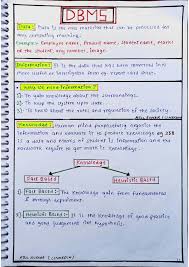 DBMS
Data: There is the raw material that can be processed for
any computing machine.
Example:- Employee name, Product name, Student name, marks
of the student, any number, Image.
Information: It is the data that has been converted in to
more useful or intelligent form eg. report card sheet.
Why we need Information?
1) To gain knowledge about the surroundings.
2) To keep the system up to date.
3) To know about the rules and regulation of the society.
Knowledge: Human mind purposefully organize the
information and evaluate it to produce knowledge eg 258
is a data marks of student is information and the
hardwork require to get mark is knowledge.
Knowledge
Fact Based
Heuristic Based
Fact Based:- The knowledge gain from fundamentals
& through experiment.
Heuristic Based:- It is the knowledge of good practice
and good judgement like hypothesis.
ATUL KUMAR (LINKEDIN)